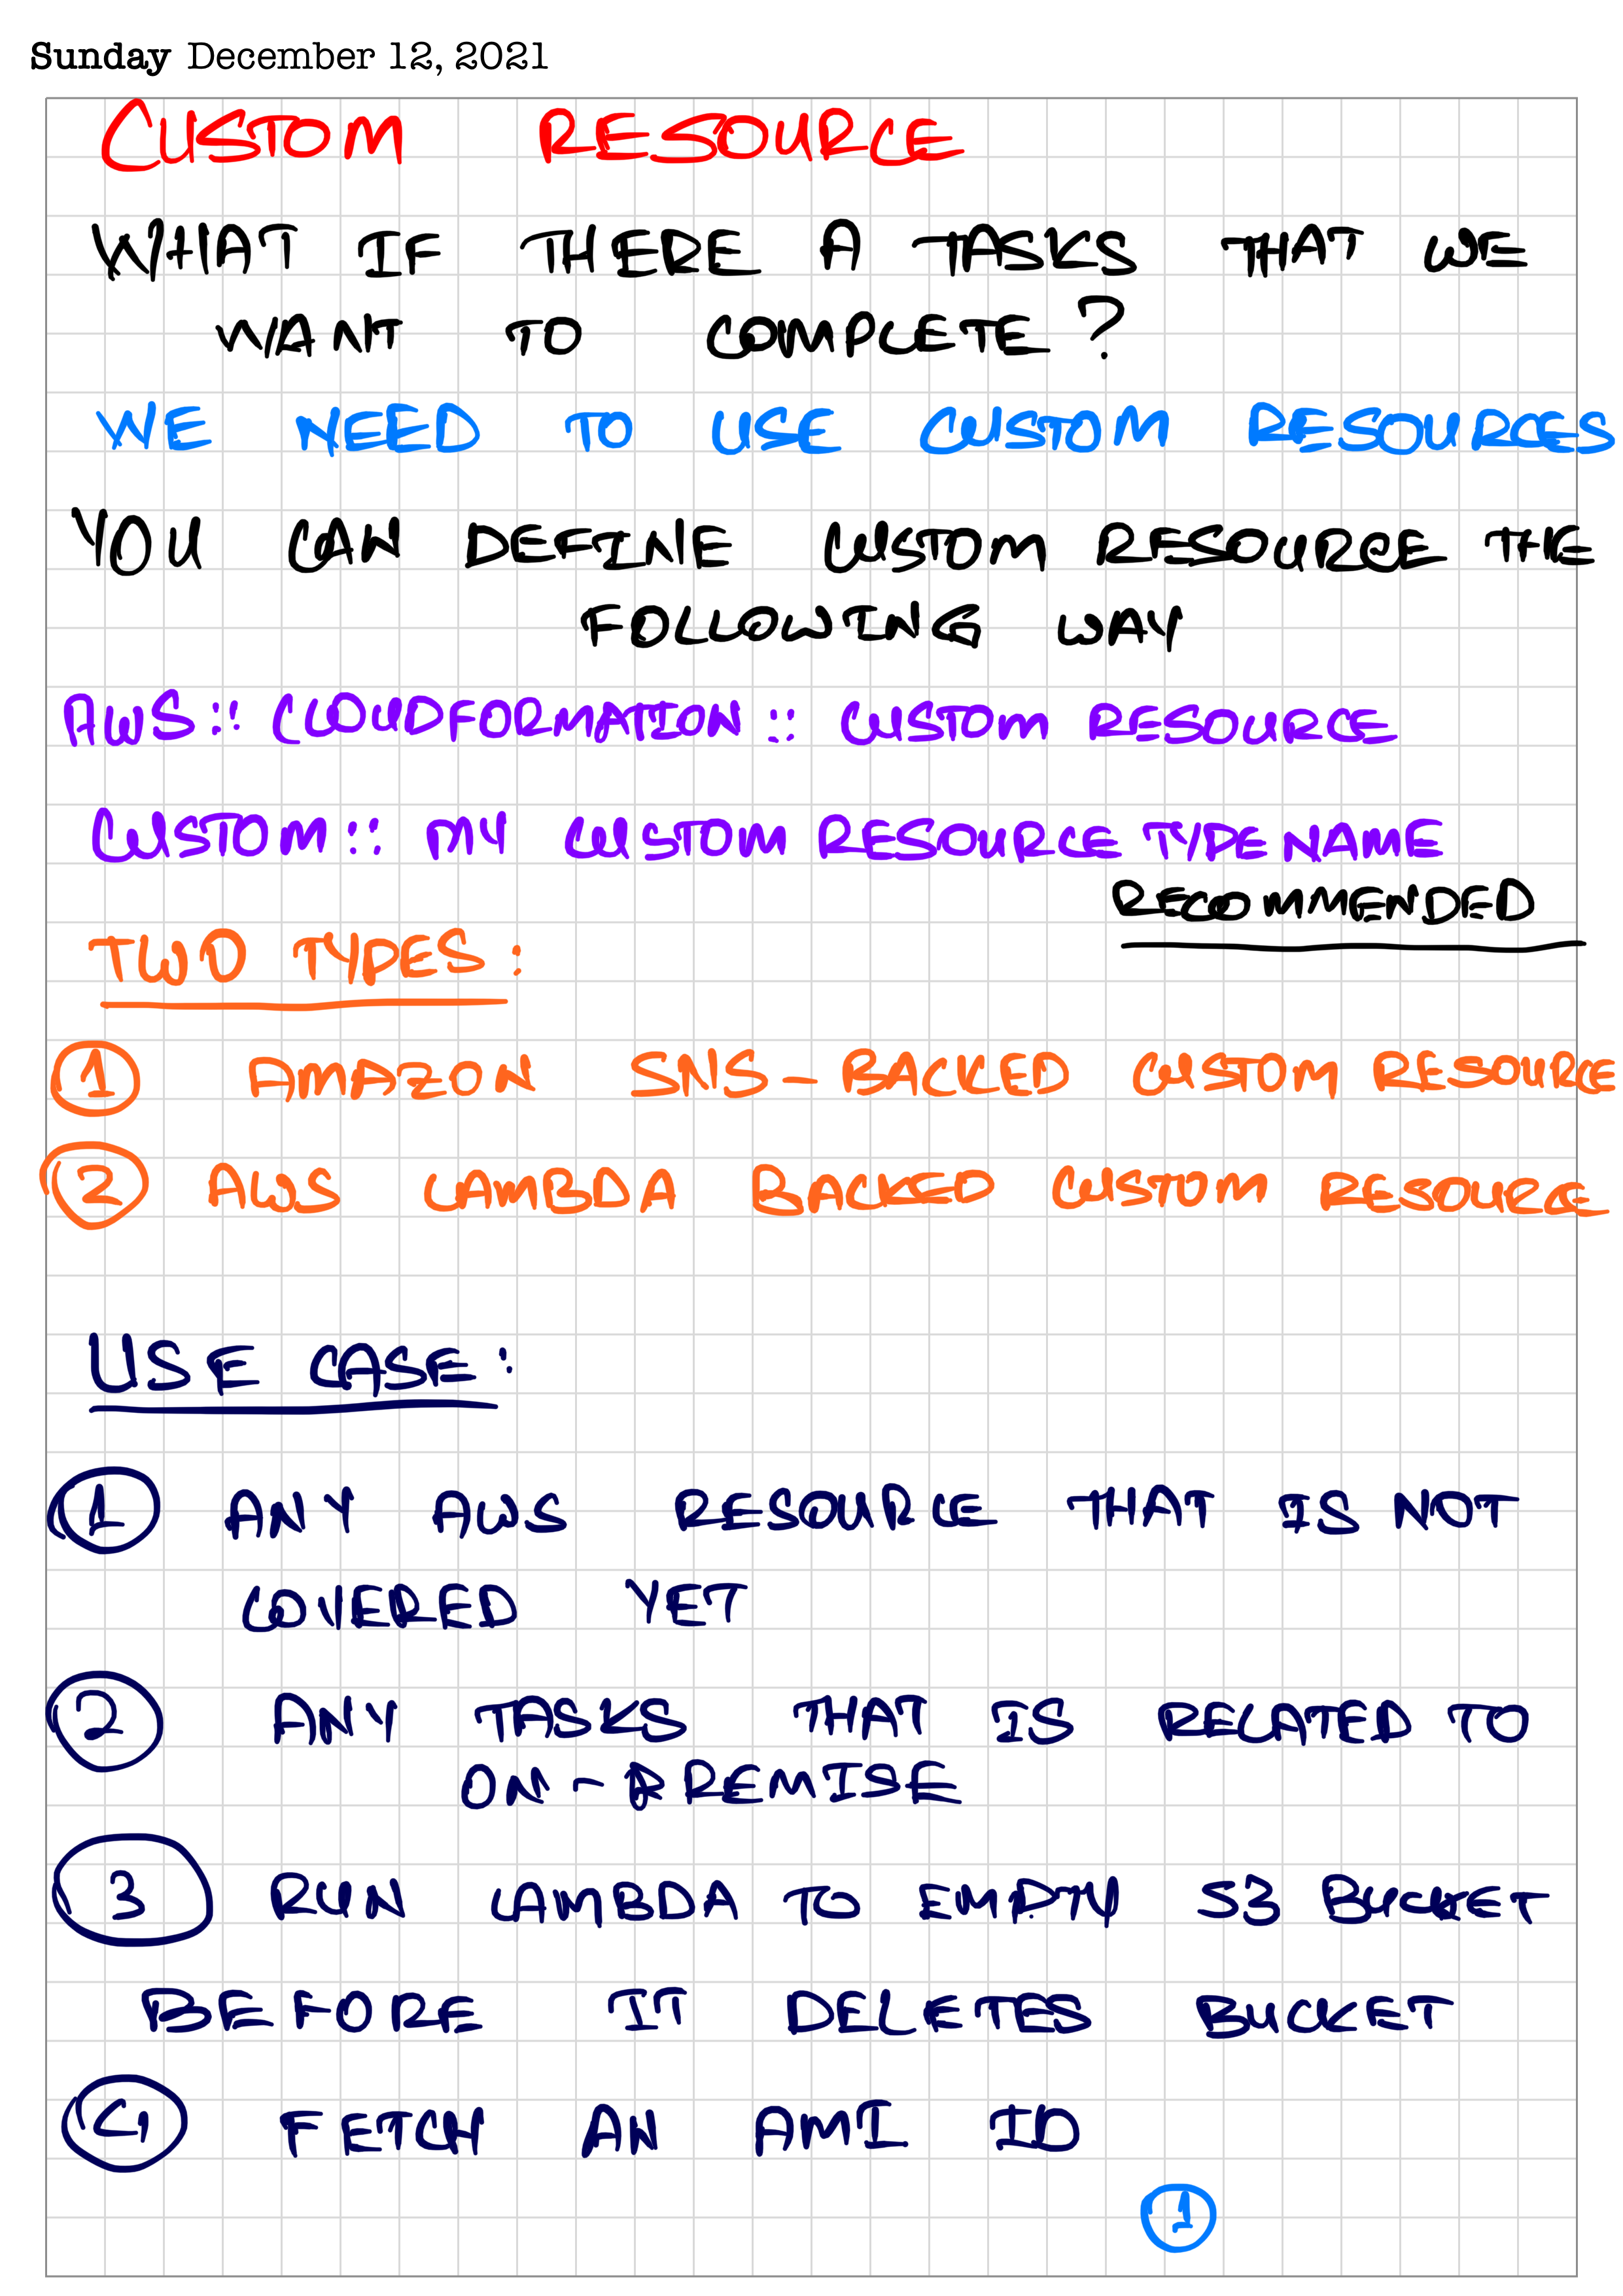 Sunday December 12, 2021
CUSTOM RESOURCE
WHAT IF THERE A TASKS THAT WE
WANT TO COMPLETE?
WE NEED TO USE CUSTOM RESOURCES
YOU CAN DEFINE CUSTOM RESOURCE THE
FOLLOWING WAY
AWS:: CLOUDFORMATION:: CUSTOM RESOURCE
CUSTOM:: MY CUSTOM RESOURCE TYPE NAME
RECOMMENDED
TWO TYPES:
1 AMAZON SNS-BACKED CUSTOM RESOURCE
2 AWS LAMBDA BACKED CUSTOM RESOURCE
USE CASE:
1 ANY AWS RESOURCE THAT IS NOT
COVERED YET
2 ANY TASKS THAT IS RELATED TO
ON-PREMISE
3 RUN LAMBDA TO EMPTY S3 BUCKET
BEFORE IT DELETES BUCKET
4 FETCH AN AMI ID
1